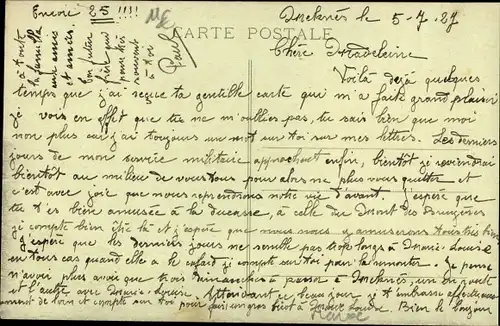 Encore 85 !!!!
CARTE POSTALE
Meknès le 5-7-27
Chère Madeleine
Voilà déjà quelques
temps que j'ai reçue ta gentille carte qui m'a fait grand plaisir
je vois en effet que tu ne m'oublies pas, tu sais bien que moi
non plus car j'ai toujours un mot sur toi sur mes lettres. Les derniers
jours de mon service militaire approchent enfin, bientôt je reviendrai
bientôt au milieu de vous tous pour alors ne plus vous quitter et
c'est avec joie que nous reprendrons notre vie d'avant. J'espère que
tu t'es bien amusée à la ducasse, à celle du Mont des Bruyères
je compte bien être là et j'espère que nous nous y amuserons tous très bien
J'espère que les derniers jours ne semble pas trop longs à Marie-Louise
en tous cas quand elle a le cafard je compte sur toi pour la remonter. Je pense
n'avoir plus avoir que trois dimanches à passer à Meknès, un en route
et l'autre avec Marie-Louise. Attendant ce beau jour je t'embrasse affectueuse
ment de loin et compte sur toi pour faire un gros bisot à Marie Louise. Bien le bonjour
à toute
ta famille
aux amies
et amis.
Ton futur
frère qui
pense très
souvent
à toi
Paul